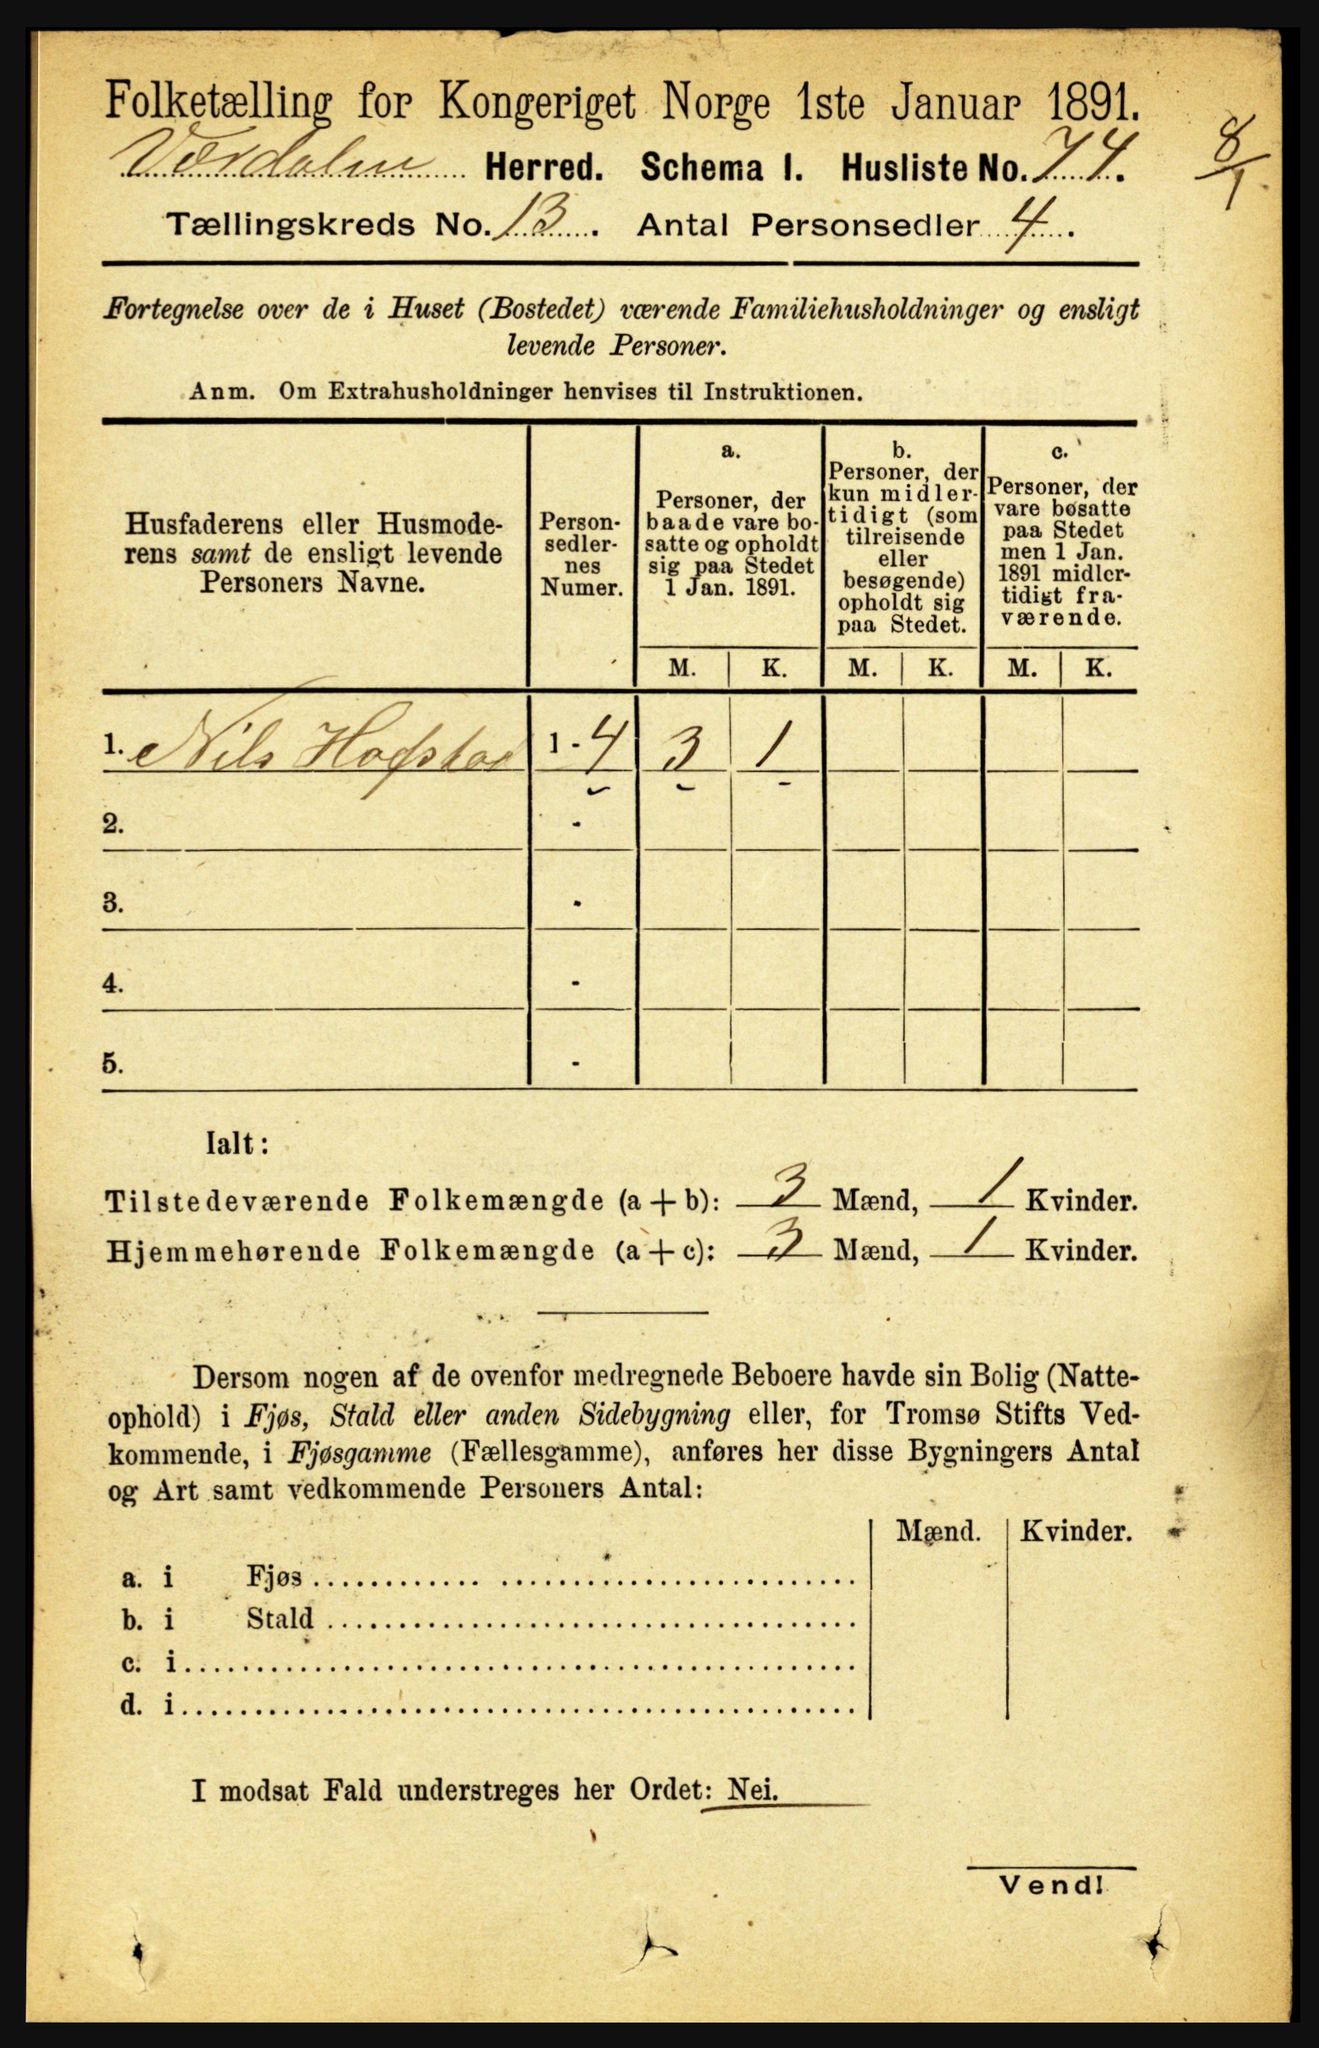 Folketælling for Kongeriget Norge 1ste Januar 1891.
Værdalen Herred. Schema I. Husliste No. 74.
8/1
Tællingskreds No. 13. Antal Personsedler 4.
Fortegnelse over de i Huset (Bostedet) værende Familiehusholdninger og ensligt
levende Personer.
Anm. Om Extrahusholdninger henvises til Instruktionen.
Husfaderens eller Husmode-
rens samt de ensligt levende
Personers Navne.
Person-
sedler-
nes
Numer.
a.
Personer, der
baade vare bo-
satte og opholdt
sig paa Stedet
1 Jan. 1891.
b.
Personer, der
kun midler-
tidigt (som
tilreisende
eller
besøgende)
opholdt sig
paa Stedet.
c.
Personer, der
vare bosatte
paa Stedet
men 1 Jan.
1891 midler-
tidigt fra-
værende.
M. K. M. K. M. K.
1. Nils Hofstad 1 - 4 3 1
2. -
3. -
4. -
5. -
Ialt:
Tilstedeværende Folkemængde (a + b): 3 Mænd, 1 Kvinder.
Hjemmehørende Folkemængde (a + c): 3 Mænd, 1 Kvinder.
Dersom nogen af de ovenfor medregnede Beboere havde sin Bolig (Natte-
ophold) i Fjøs, Stald eller anden Sidebygning eller, for Tromsø Stifts Ved-
kommende, i Fjøsgamme (Fællesgamme), anføres her disse Bygningers Antal
og Art samt vedkommende Personers Antal:
Mænd. Kvinder.
a. i Fjøs
b. i Stald
c. i
d. i
I modsat Fald understreges her Ordet: Nei.
Vend!